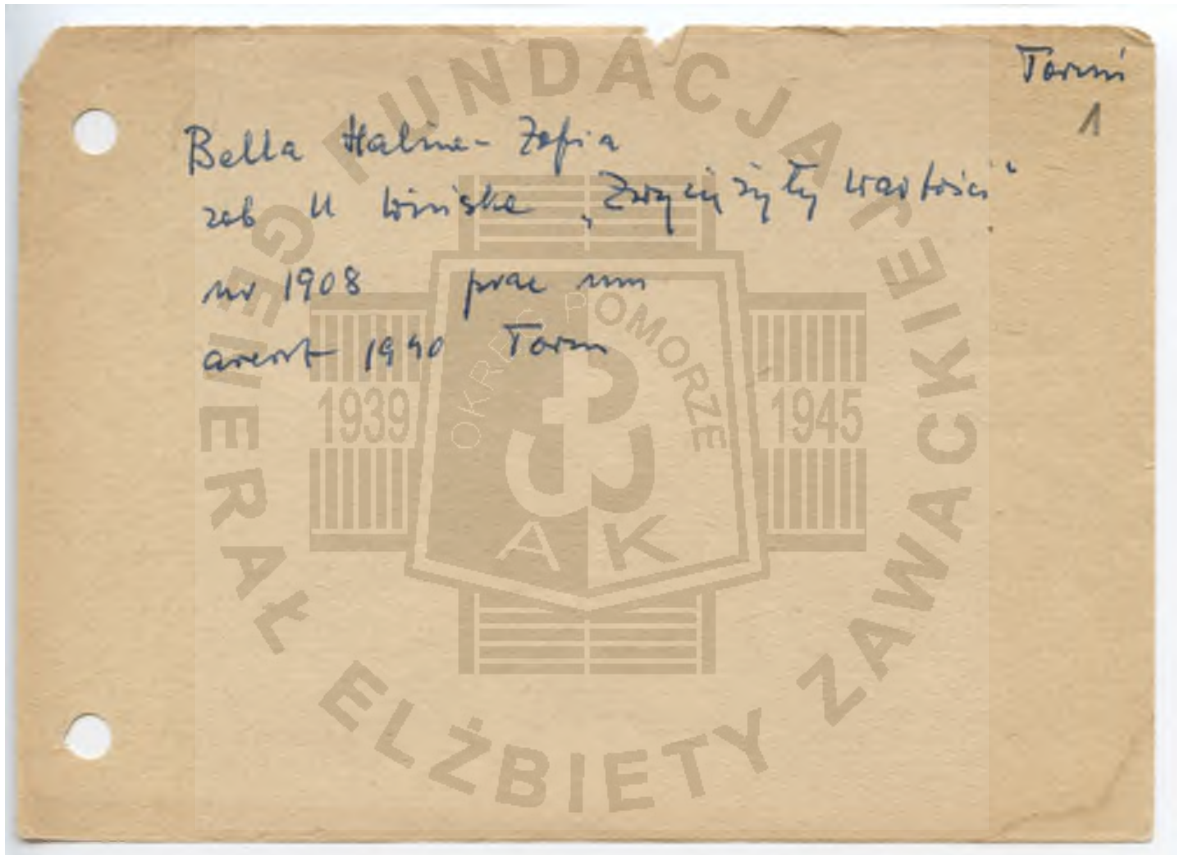 Toruń
1
Bella Halina-Zofia
zob U Wińska „Zwyciężyły wartości"
ur 1908 prac um
areszt 1940 Toruń
FUNDACJA GENERAŁ ELŻBIETY ZAWACKIEJ
OKRĘG POMORZE
1939 1945
AK